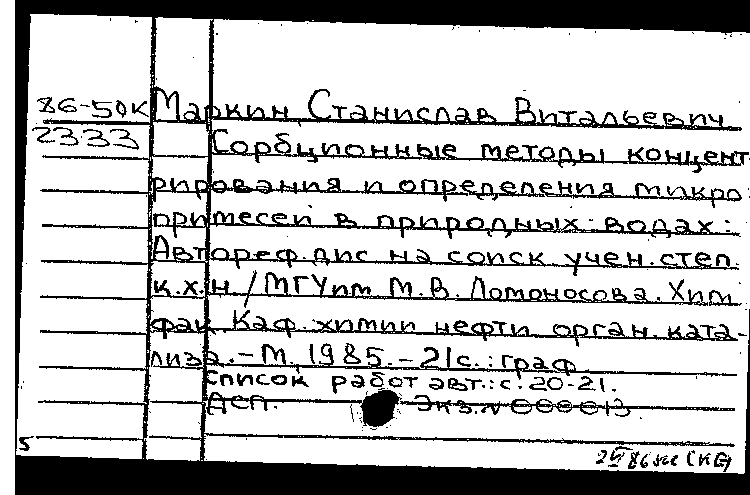 86-5ДК Маркин, Станислав Витальевич
2333 Сорбционные методы концент-
рирования и определения микро-
примесей в природных водах:
Автореф. дис на соиск учен. степ.
к.х.н. / МГУ им М.В. Ломоносова. Хим
фак. Каф. химии нефти орган. ката-
лиза. - М, 1985. - 21 с.: граф
Список работ авт.: с. 20-21.
Деп. Экз. N 000013
5